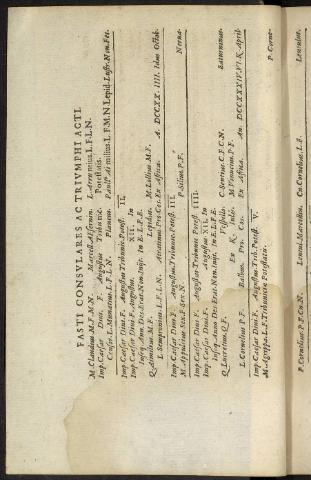 FASTI CONSVLARES AC TRIVMPHI ACTI.
M. Claudius M. F. M. N. Marcell. Aeserninn. L. Arruntius L. F. L. N.
Imp. Caesar Diui. F. Augustus Tribunic. Potestatis.
Censor. L. Munatius L. F. L. N. Plancus. Paull. Aemilius L. F. M. N. Lepid. Lustr. Non. Fec.
Imp. Caesar Diui. F. Augustus Tribunic. Potest. II.
Imp. Caesar Diui. F. Augustus. XII. In
Inseq. Ann. Des. Erat. Non. Inijt. In E. L. F. E.
Q. Aemilius M. F. Lepidus. M. Lollius M. F.
L. Sempronius L. F. L. N. Atratinus Pro. Cos. Ex Africa. A. DCCXX. IIII. Idus Octob.
Imp. Caesar Diui. F. Augustus Tribunic. Potest. III.
M. Appuleius Sex. F. Sex. N. P. Silius. P. F. Nerua.
Imp. Caesar Diui. F. Augustus Tribunic. Potest. IIII.
Imp. Caesar Diui. F. Augustus XII. In
Inseq. Anno Des. Erat. Non. Inijt. In E. L. F. E.
Q. Lucretius. Q. F. Vispillo C. Sentius. C. F. C. N. Saturninus.
Ex K. Iul. M. Vinucius. P. F.
L. Cornelius P. F. Balbus. Pro. Cos. Ex Africa. An. DCCXXXIV. VI. K. April.
Imp. Caesar Diui. F. Augustus Trib. Potest. V.
M. Agrippa. L. F. Tribunicia Potestate. P. Corne-
P. Cornelius P. F. Cn. N. Lentul. Marcellin. Cn. Cornelius. L. F. Lentulus.